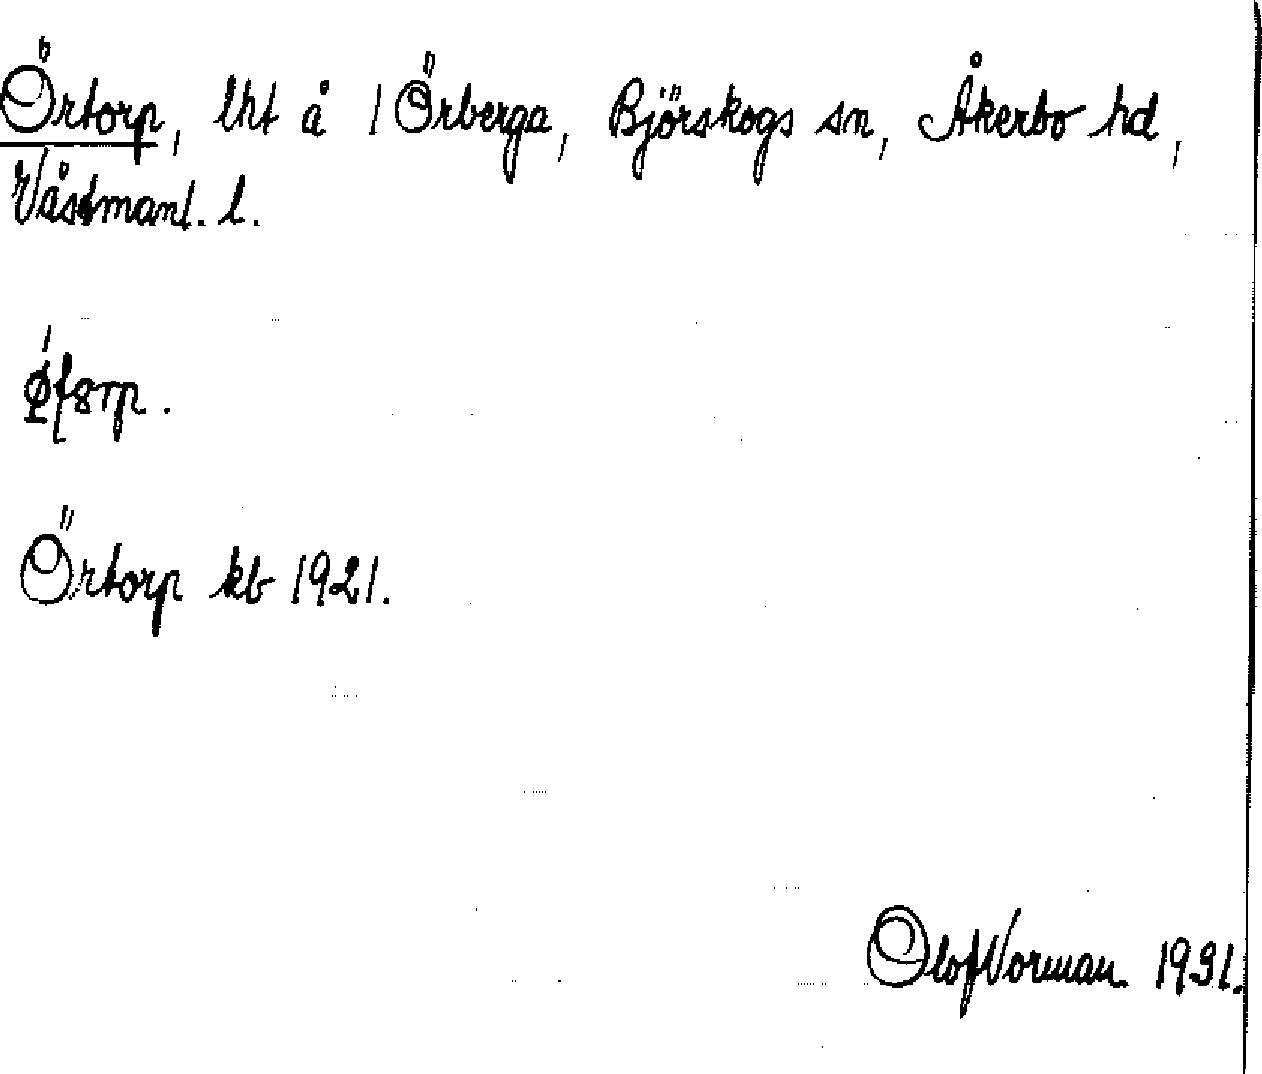 Örtorp, lht å 1 Örberga, Björskogs sn, Åkerbo hd,
Västmanl. l.
Örtorp kb 1921.
Olof Vorman 1931.